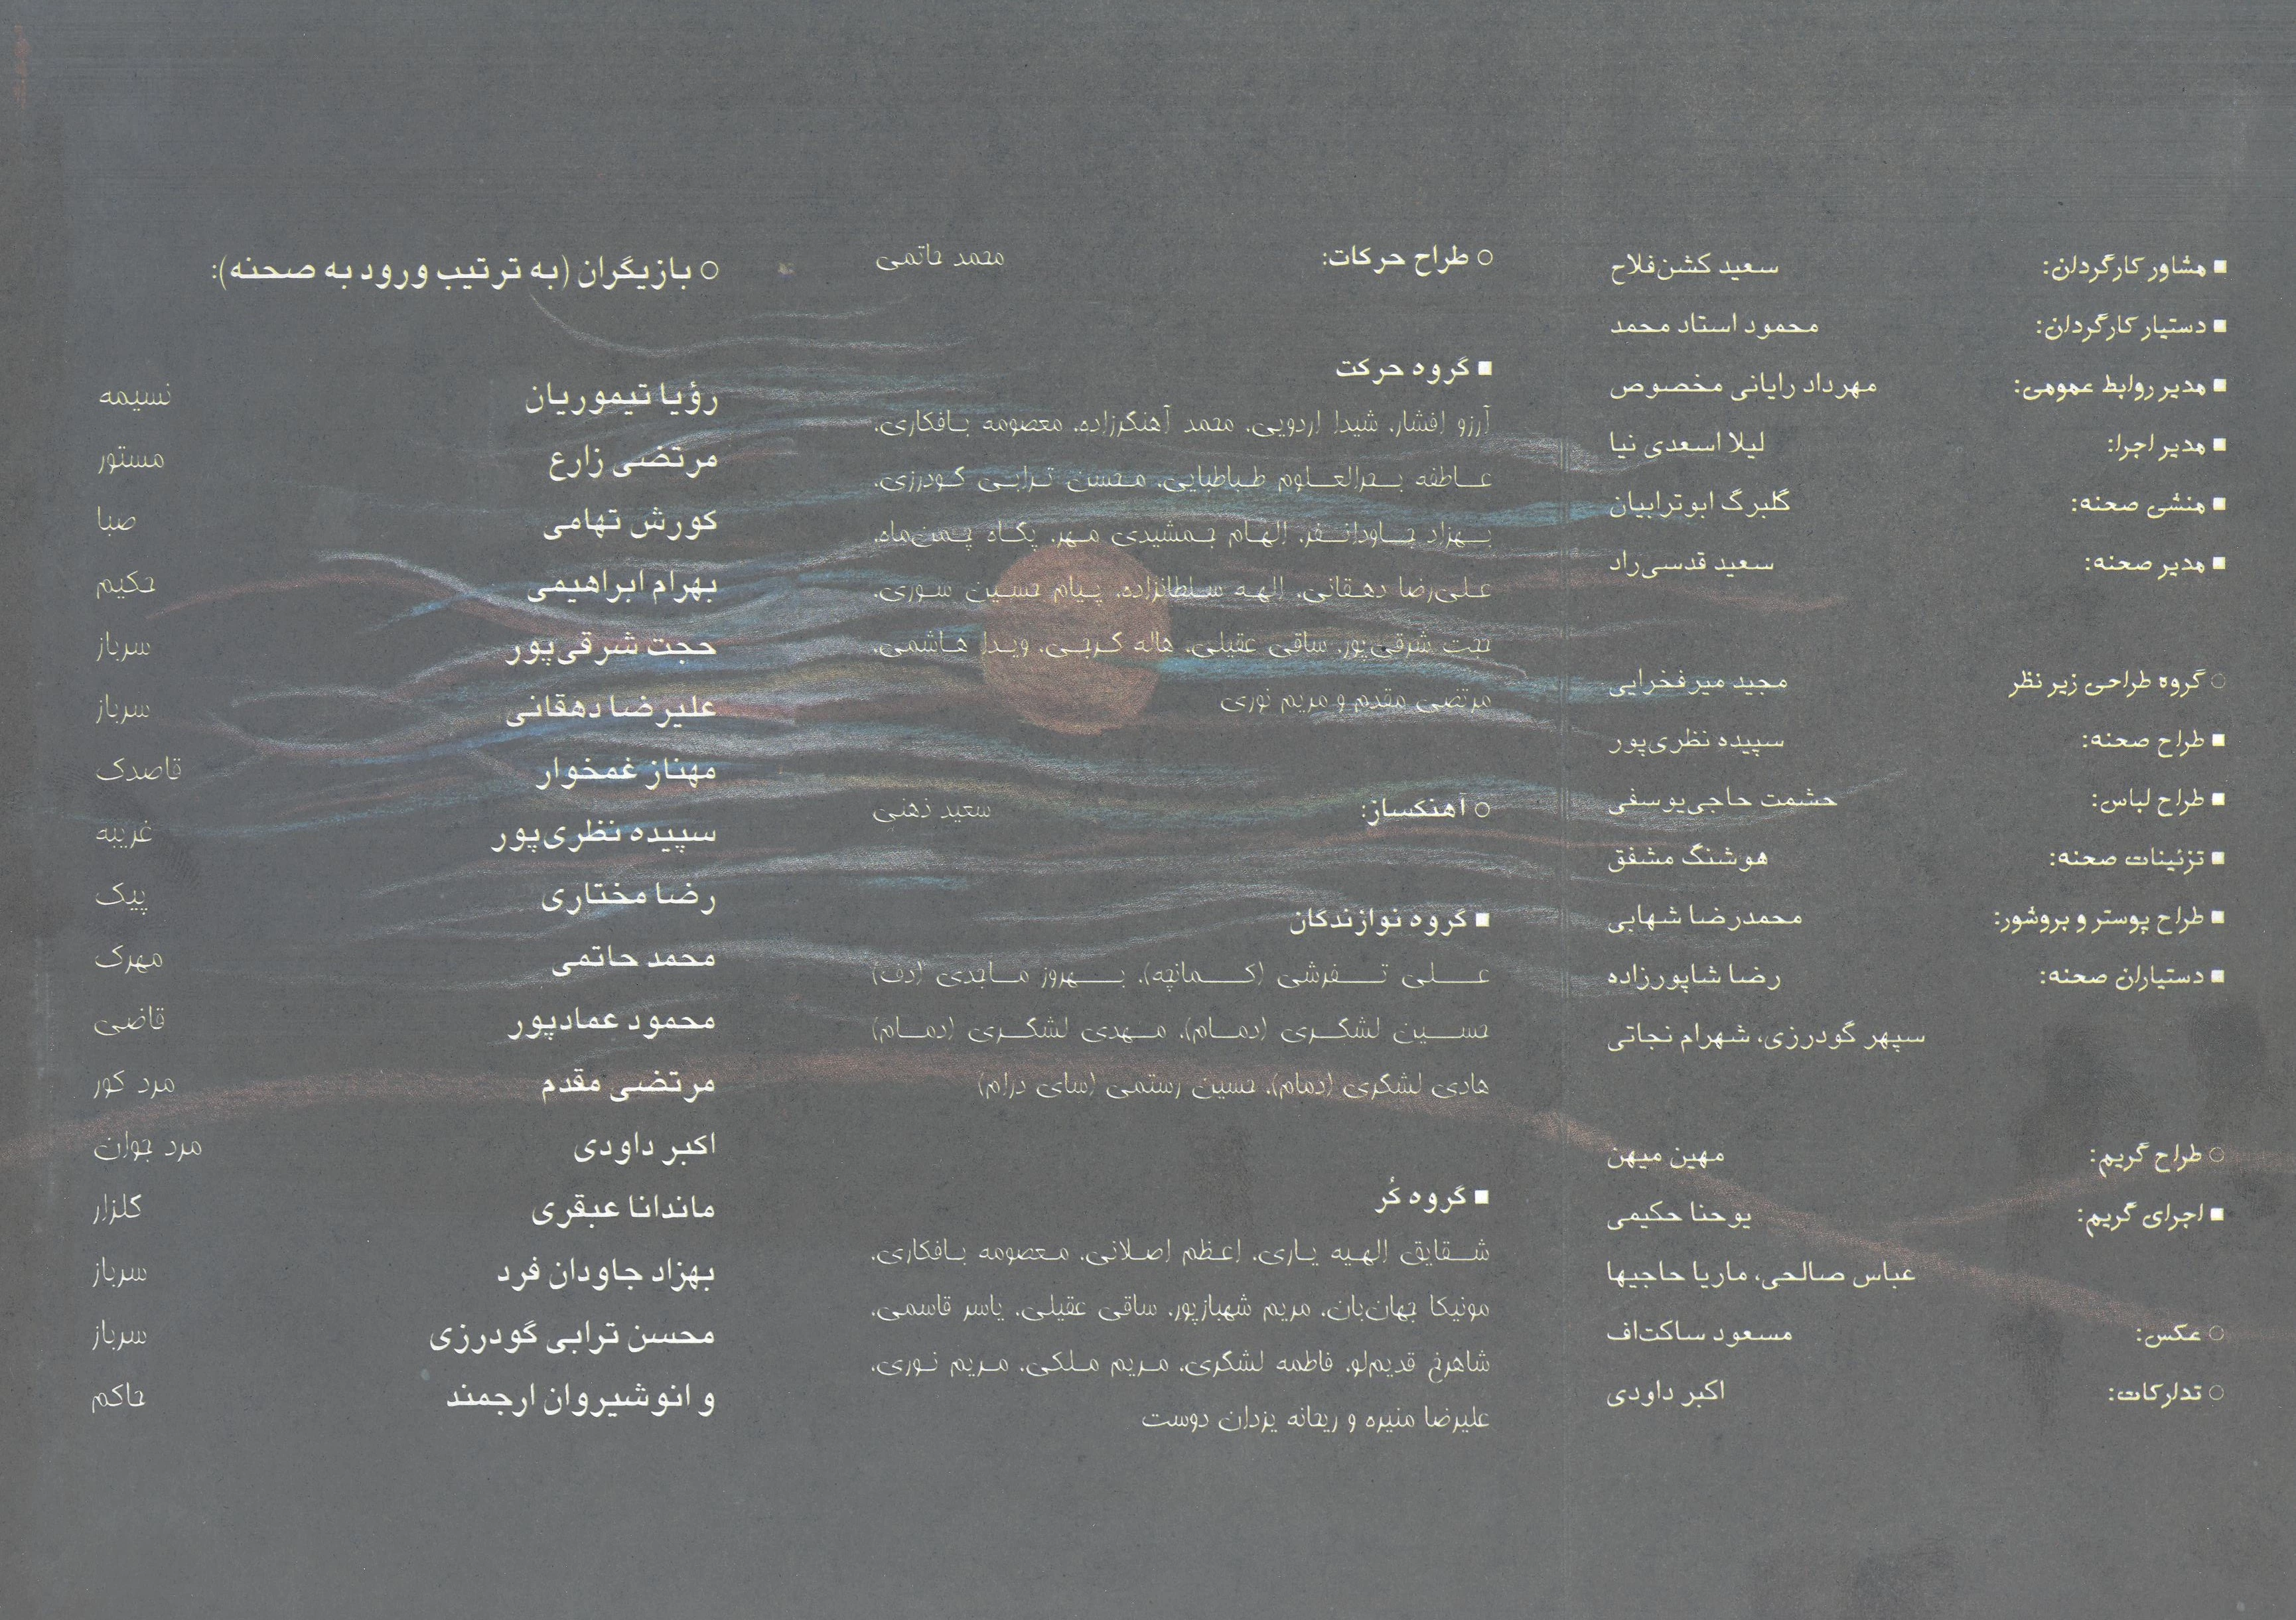 ■ مشاور کارگردان: سعید کشن‌فلاح
■ دستیار کارگردان: محمود استاد محمد
■ مدیر روابط عمومی: مهرداد رایانی مخصوص
■ مدیر اجرا: لیلا اسعدی نیا
■ منشی صحنه: گلبرگ ابوترابیان
■ مدیر صحنه: سعید قدسی‌راد
○ گروه طراحی زیر نظر مجید میرفخرایی
■ طراح صحنه: سپیده نظری‌پور
■ طراح لباس: حشمت حاجی‌یوسفی
■ تزئینات صحنه: هوشنگ مشفق
■ طراح پوستر و بروشور: محمدرضا شهابی
■ دستیاران صحنه: رضا شاپورزاده
سپهر گودرزی، شهرام نجاتی
○ طراح گریم: مهین میهن
■ اجرای گریم: یوحنا حکیمی
عباس صالحی، ماریا حاجیها
○ عکس: مسعود ساکت‌اف
○ تدارکات: اکبر داودی
○ طراح حرکات: محمد حاتمی
■ گروه حرکت
آرزو افشار، شیدا اردویی، محمد آهنگرزاده، معصومه بافکاری،
عاطفه بحرالعلوم طباطبایی، محسن ترابی گودرزی،
بهزاد جاودانفر، الهام جمشیدی مهر، پگاه چمن‌ماه،
علی‌رضا دهقانی، الهه سلطانزاده، پیام حسین سوری،
حجت شرقی‌پور، ساقی عقیلی، هاله کرجی، ویدا هاشمی،
مرتضی مقدم و مریم نوری
○ آهنگساز: سعید ذهنی
■ گروه نوازندگان
علی تفرشی (کمانچه)، بهروز ماجدی (دف)
حسین لشگری (دمام)، مهدی لشگری (دمام)
هادی لشگری (دمام)، حسین رستمی (سای درام)
■ گروه کُر
شقایق الهیه یاری، اعظم اصلانی، معصومه بافکاری،
مونیکا جهان‌بان، مریم شهبازپور، ساقی عقیلی، یاسر قاسمی،
شاهرخ قدیم‌لو، فاطمه لشگری، مریم ملکی، مریم نوری،
علیرضا منیره و ریحانه یزدان دوست
○ بازیگران (به ترتیب ورود به صحنه):
رؤیا تیموریان نسیمه
مرتضی زارع مستور
کورش تهامی صبا
بهرام ابراهیمی حکیم
حجت شرقی‌پور سرباز
علیرضا دهقانی سرباز
مهناز غمخوار قاصدک
سپیده نظری‌پور غریبه
رضا مختاری پیک
محمد حاتمی مهرک
محمود عمادپور قاضی
مرتضی مقدم مرد کور
اکبر داودی مرد جوان
ماندانا عبقری گلزار
بهزاد جاودان فرد سرباز
محسن ترابی گودرزی سرباز
و انوشیروان ارجمند حاکم